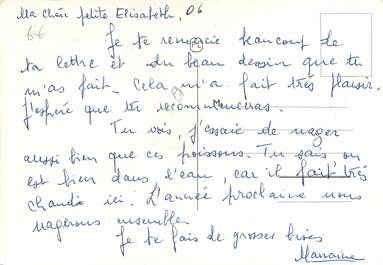 Ma chère petite Elisabeth, 06
66
Je te remercie beaucoup de
ta lettre et du beau dessin que tu
m'as fait. Cela m'a fait très plaisir.
J'espère que tu recommenceras.
Tu vois, j'essaie de nager
aussi bien que ces poissons. Tu sais on
est bien dans l'eau, car il fait très
chaud ici. L'année prochaine nous
nagerons ensemble.
Je te fais de grosses bises
Marraine